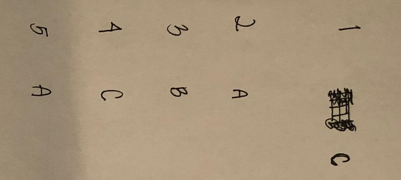 1 C
2 A
3 B
4 C
5 A